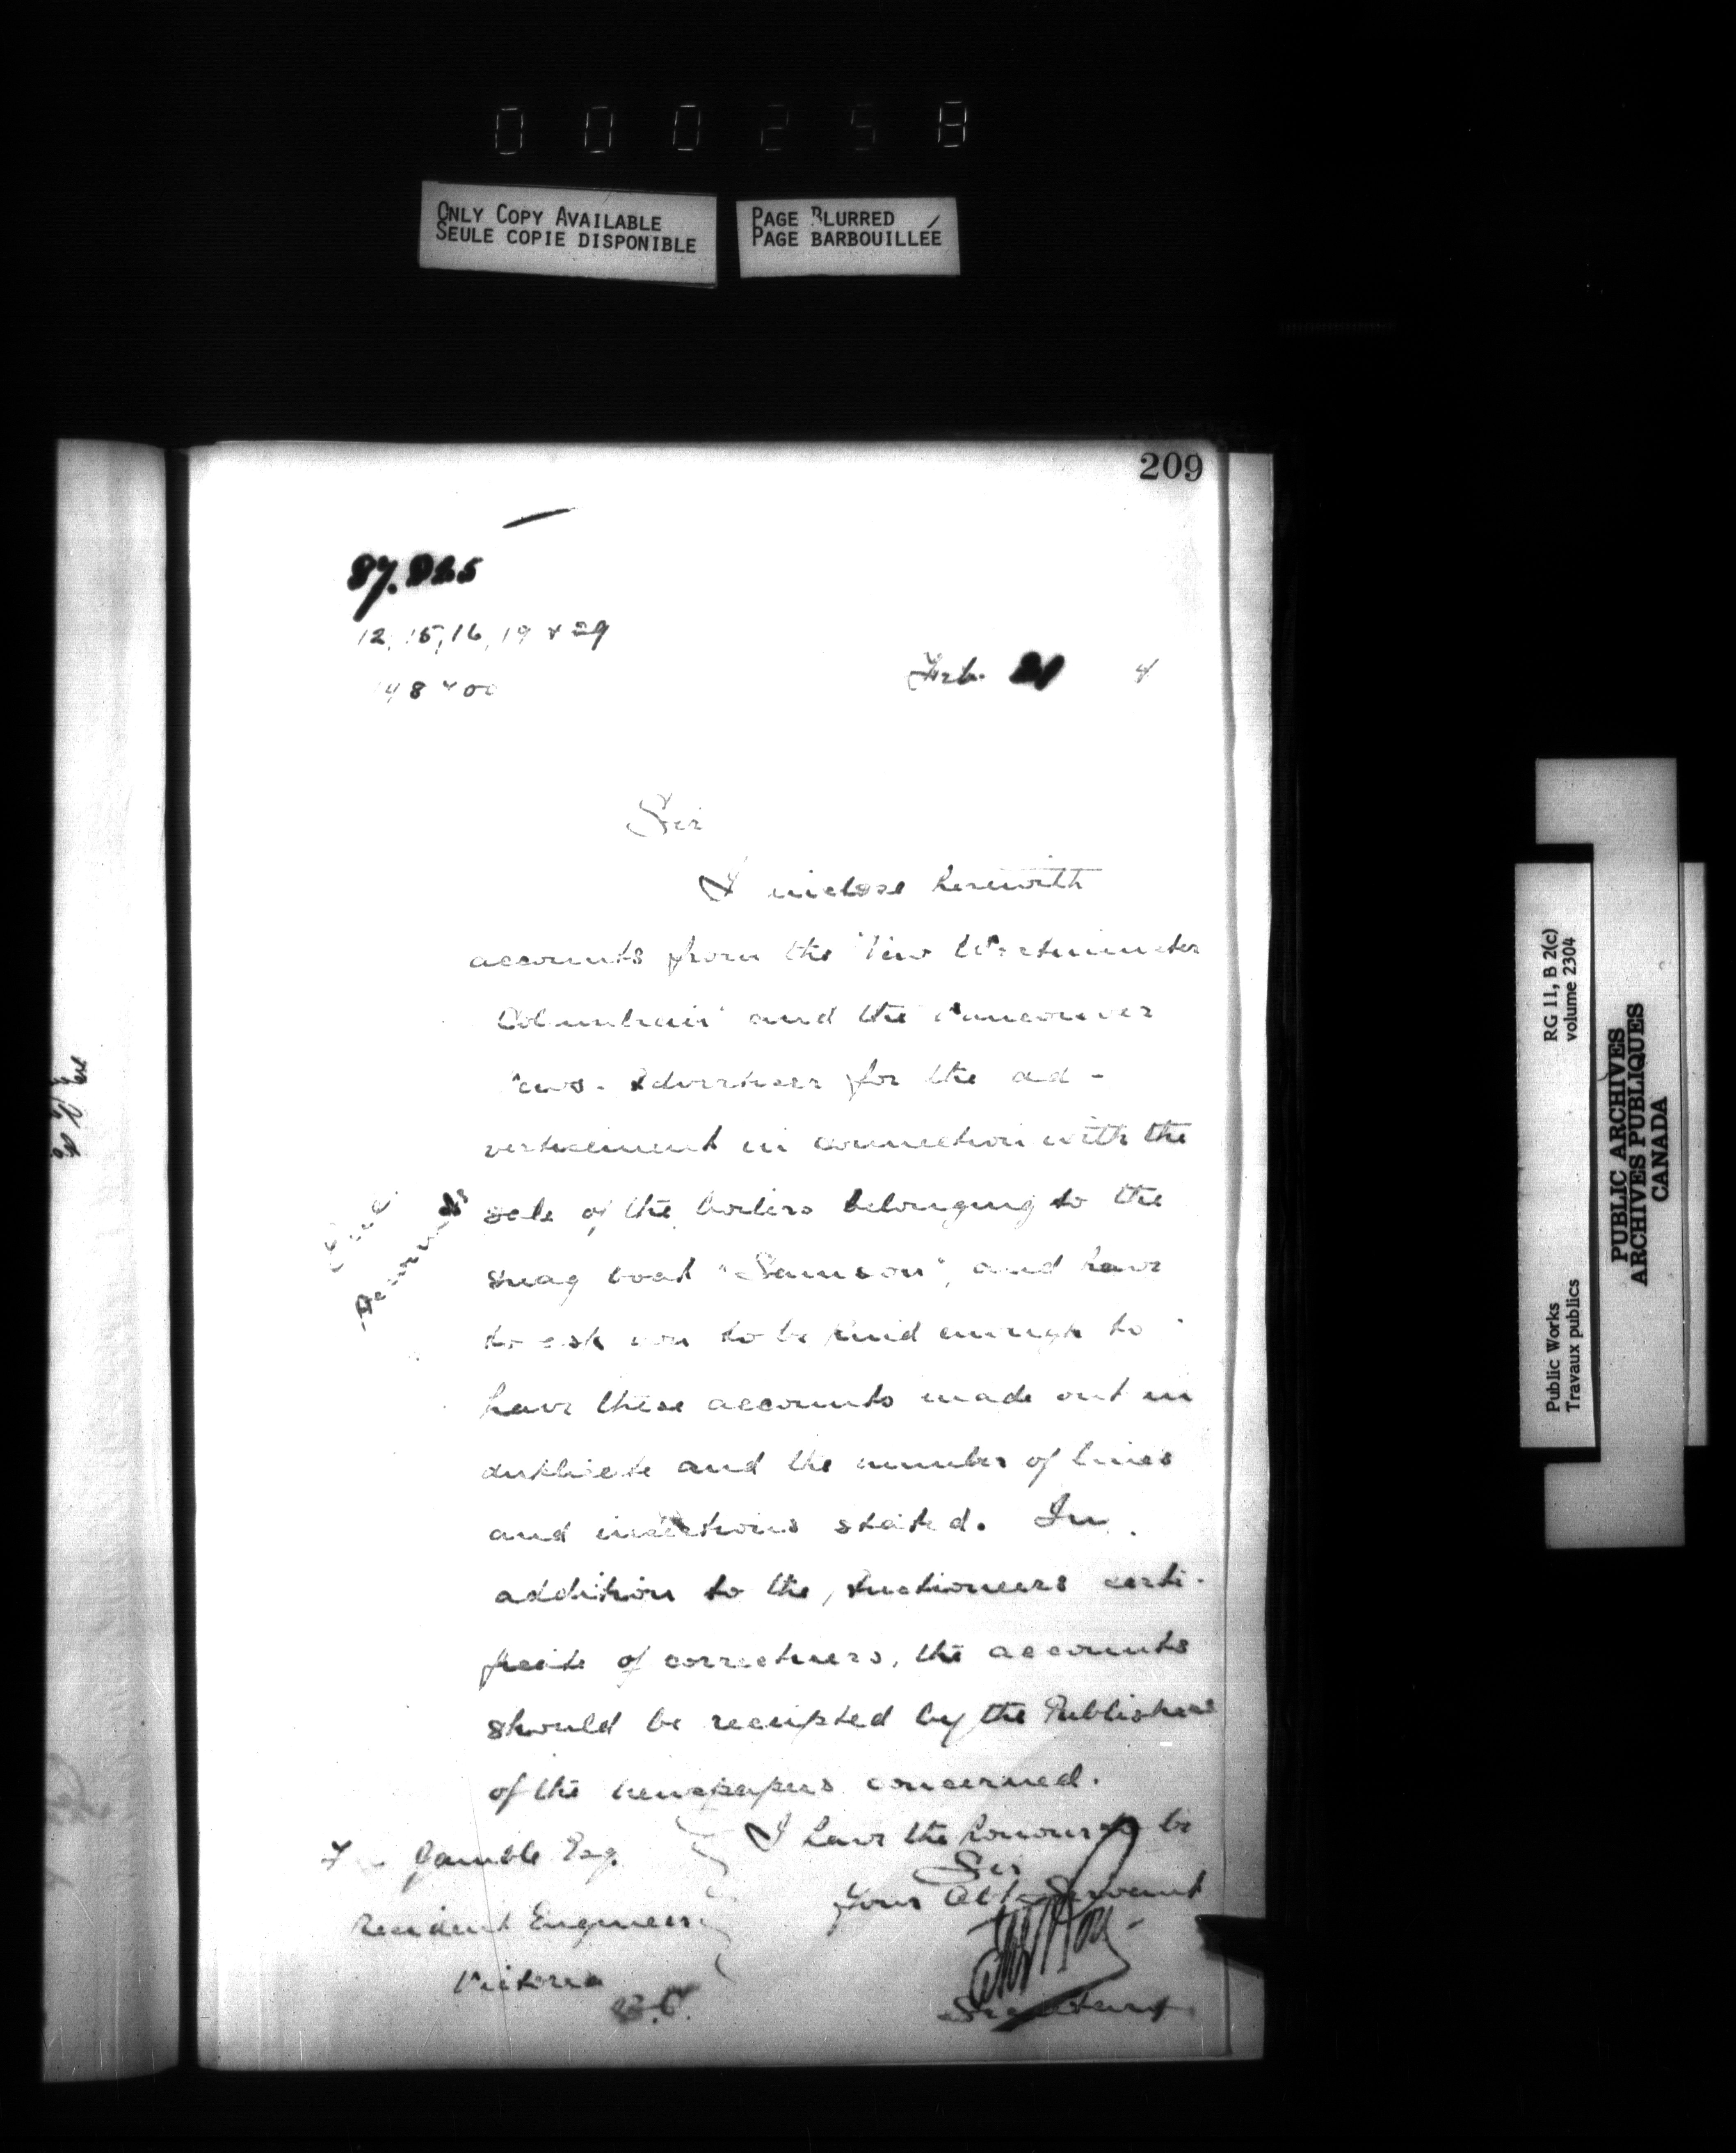 000258
ONLY COPY AVAILABLE
SEULE COPIE DISPONIBLE
PAGE BLURRED
PAGE BARBOUILLÉE
209
12, 15, 16, 19 & 29
Feb. 21 4
Sir
I inclose herewith
accounts from the New Westminster
Columbian" and the Vancouver
News-Advertiser for the ad-
vertisement in connection with the
sale of the boilers belonging to the
snag boat "Samson", and have
to ask you to be kind enough to
have these accounts made out in
duplicate and the number of lines
and insertions stated. In
addition to the Auctioneers certi-
ficate of correctness, the accounts
should be receipted by the Publishers
of the newspapers concerned.
I have the honour to be
Sir
Your Obt. Servant
Secretary
F Gamble Esq.
Resident Engineer
Victoria
B.C.
RG 11, B 2(c)
volume 2304
Public Works
Travaux publics
PUBLIC ARCHIVES
ARCHIVES PUBLIQUES
CANADA